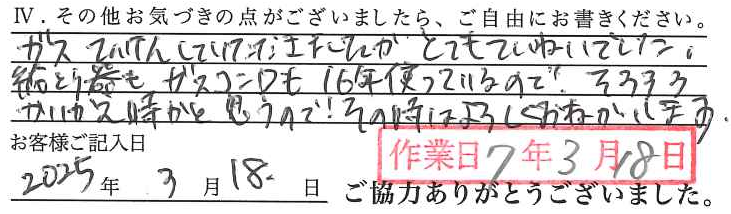 Ⅳ．その他お気づきの点がございましたら、ご自由にお書きください。
ガスてんけんしていただきましたが とてもていねいでした。
給とう器も ガスコンロも 16年使っているので、そろそろ
かいかえ時かと思うので！その時はよろしくおねがいします。
お客様ご記入日
作業日 7年3月18日
2025年 3月18.日 ご協力ありがとうございました。